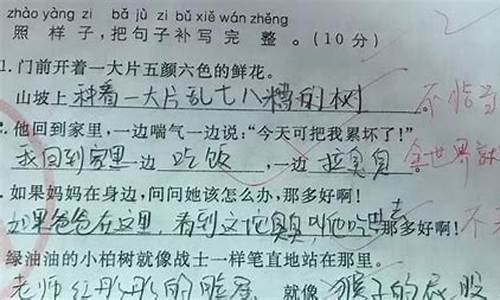 zhào yàng zi bǎ jù zi bǔ xiě wán zhěng
照样子,把句子补写完整。(10分)
1.门前开着一大片五颜六色的鲜花。
山坡上种着一大片乱七八糟的树 不恰当
他回到家里,一边喘气一边说:“今天可把我累坏了!”
我回到家里一边吃饭,一边拉臭臭。全世界
.如果妈妈在身边,问问她该怎么办,那多好啊!
如果爸爸在这里,看到这坨臭臭叫他吃去那多好啊! 不
绿油油的小柏树就像战士一样笔直地站在那里。
老师红彤彤的脸蛋就像猴子的屁股